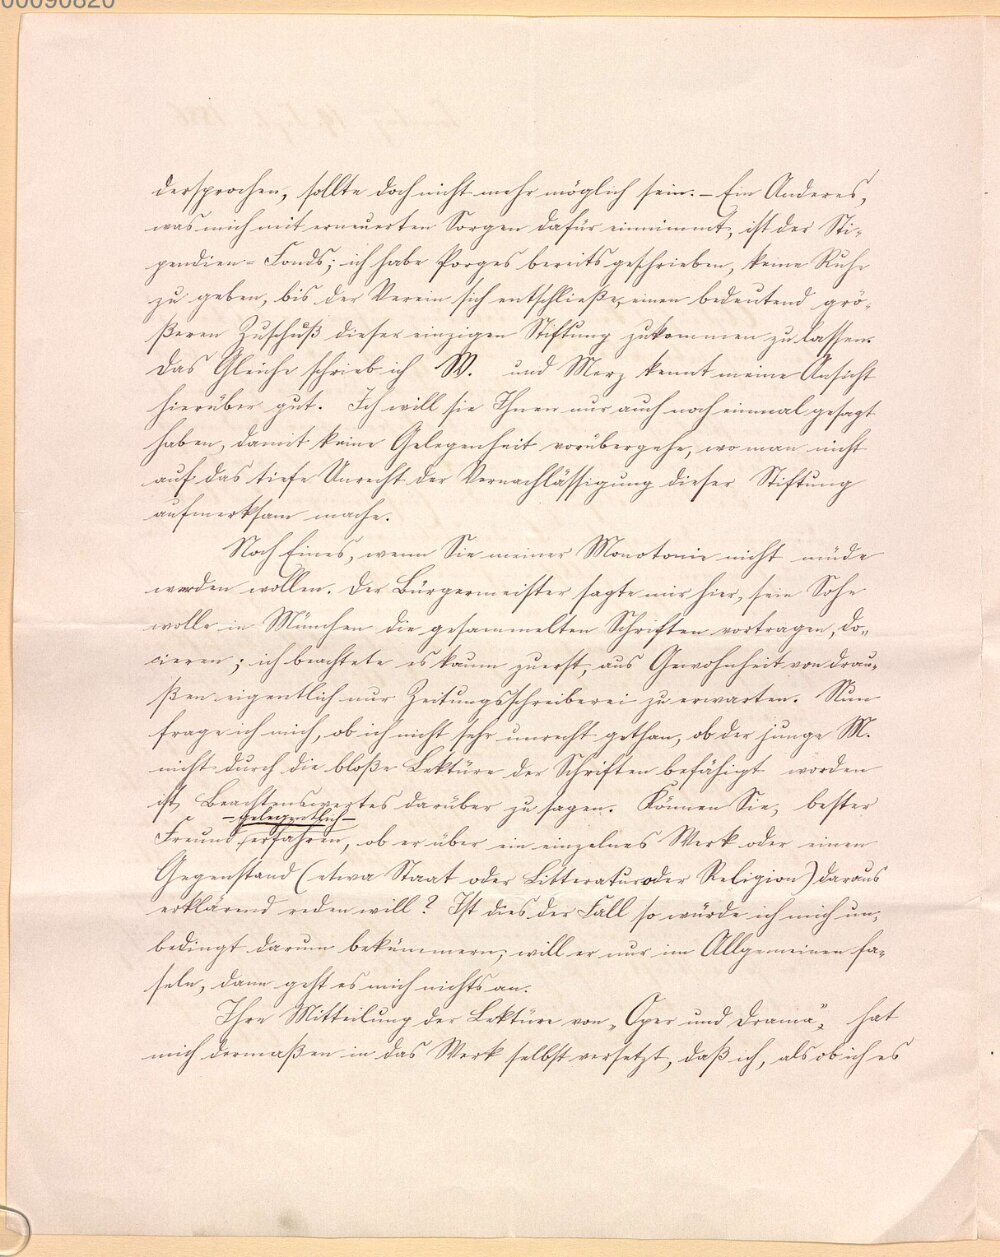 00090820
dersprochen, sollte doch nicht mehr möglich sein. – Ein Anderes,
was mich mit erneuerten Sorgen dafür einnimmt, ist der Sti-
pendien-Fonds; ich habe Porges bereits geschrieben, keine Ruhe
zu geben, bis der Verein sich entschließe, einen bedeutend grö-
ßeren Zuschuß dieser einzigen Stiftung zukommen zu lassen.
Das Gleiche schrieb ich W. und Merz kennt meine Ansicht
hierüber gut. Ich will sie Ihnen nur auch noch einmal gesagt
haben, damit keine Gelegenheit vorübergehe, wo man nicht
auf das tiefe Unrecht der Vernachlässigung dieser Stiftung
aufmerksam mache.
Noch Eines, wenn Sie meiner Monotonie nicht müde
werden wollen. Der Bürgermeister sagte mir hier, sein Sohn
wolle in München die gesammelten Schriften vortragen, do-
cieren; ich beachtete es kaum zuerst, aus Gewohnheit von drau-
ßen eigentlich nur Zeitungsschreiberei zu erwarten. Nun
frage ich mich, ob ich nicht sehr unrecht gethan, ob der junge M.
nicht durch die bloße Lektüre der Schriften befähigt worden
ist, Beachtenswertes darüber zu sagen. Können Sie, bester
– gelegentlich –
Freund, erfahren, ob er über ein einzelnes Werk oder einen
Gegenstand (etwa Staat oder Litteratur oder Religion) daraus
erklärend reden will? Ist dies der Fall so würde ich mich un-
bedingt darum bekümmern; will er nur im Allgemeinen fa-
seln, dann geht es mich nichts an.
Ihre Mitteilung der Lektüre von „Oper und Drama“ hat
mich dermaßen in das Werk selbst versetzt, daß ich, als ob ich es